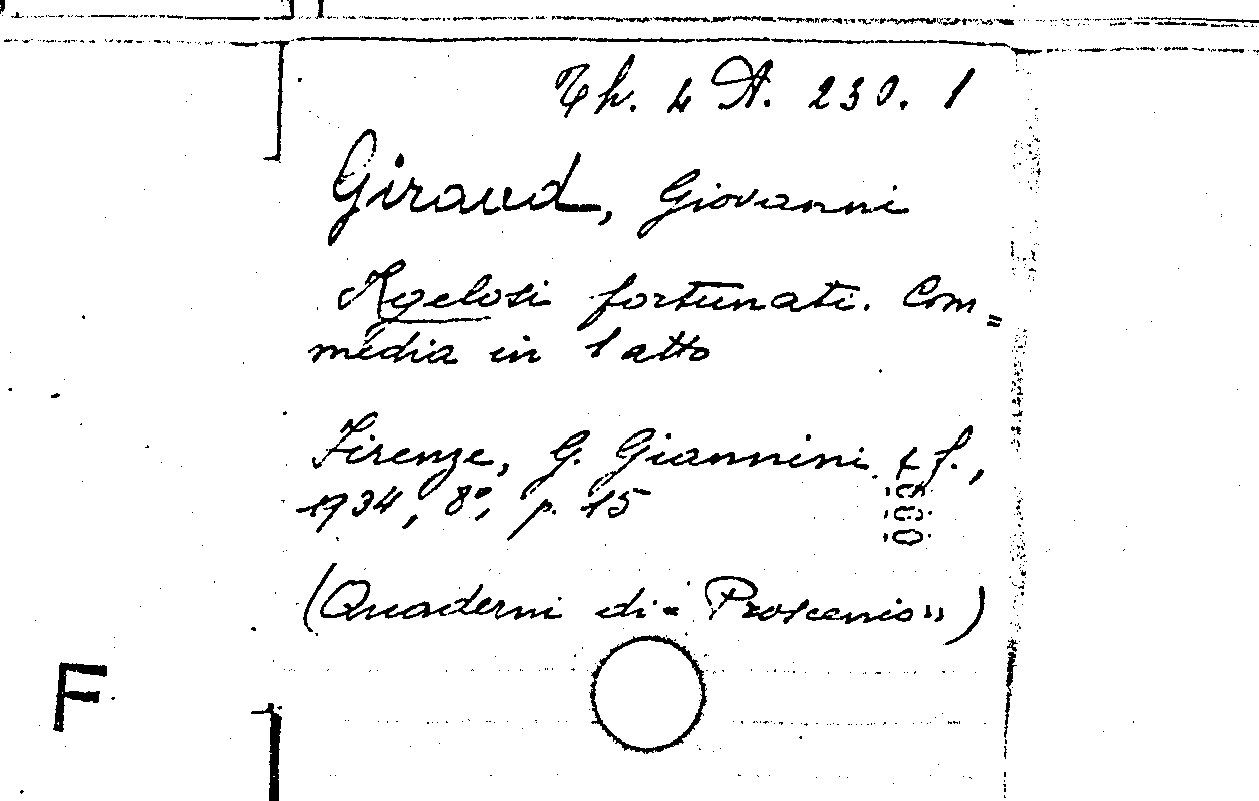 Th. 4 A. 230. 1
Giraud, Giovanni
I gelosi fortunati. Com=
media in 1 atto
Firenze, G. Giannini & f.,
1934, 8°, p. 15
(Quaderni di "Proscenio")
F